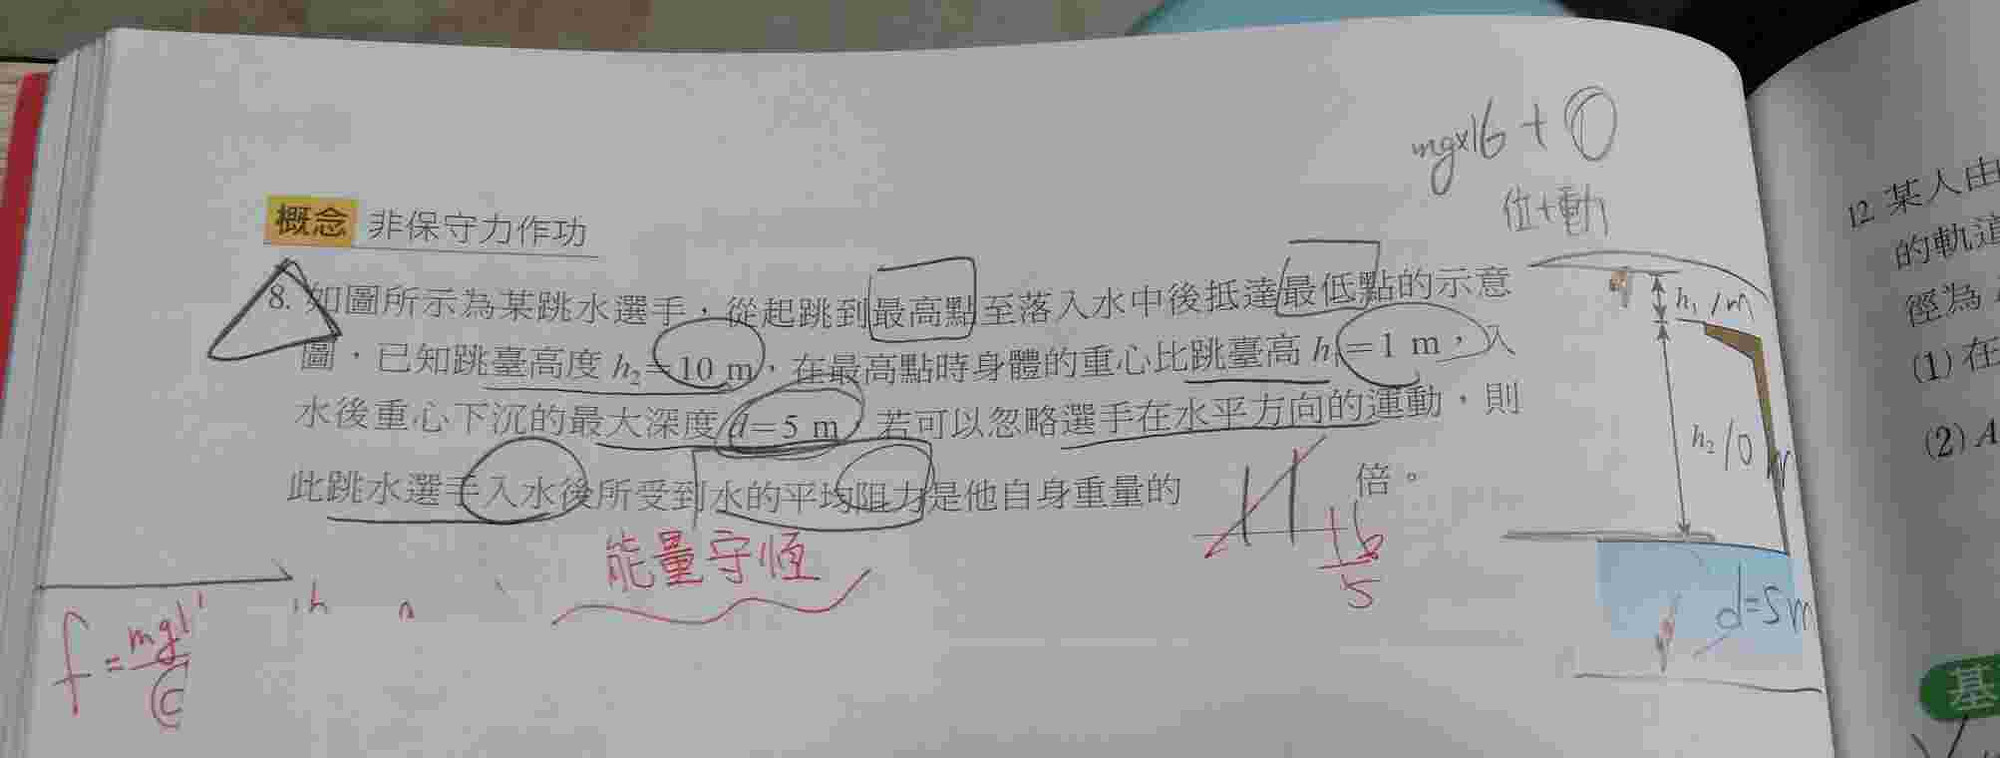 mg×16+0
位+動
概念 非保守力作功
8. 如圖所示為某跳水選手，從起跳到最高點至落入水中後抵達最低點的示意
圖，已知跳臺高度 h₂=10 m，在最高點時身體的重心比跳臺高 h₁=1 m，入
水後重心下沉的最大深度 d=5 m，若可以忽略選手在水平方向的運動，則
此跳水選手入水後所受到水的平均阻力是他自身重量的 11 倍。
16
5
能量守恆
h₁ 1m
h₂ 10
d=5m
f=
12. 某人由
的軌道
徑為
(1) 在
(2) A
基